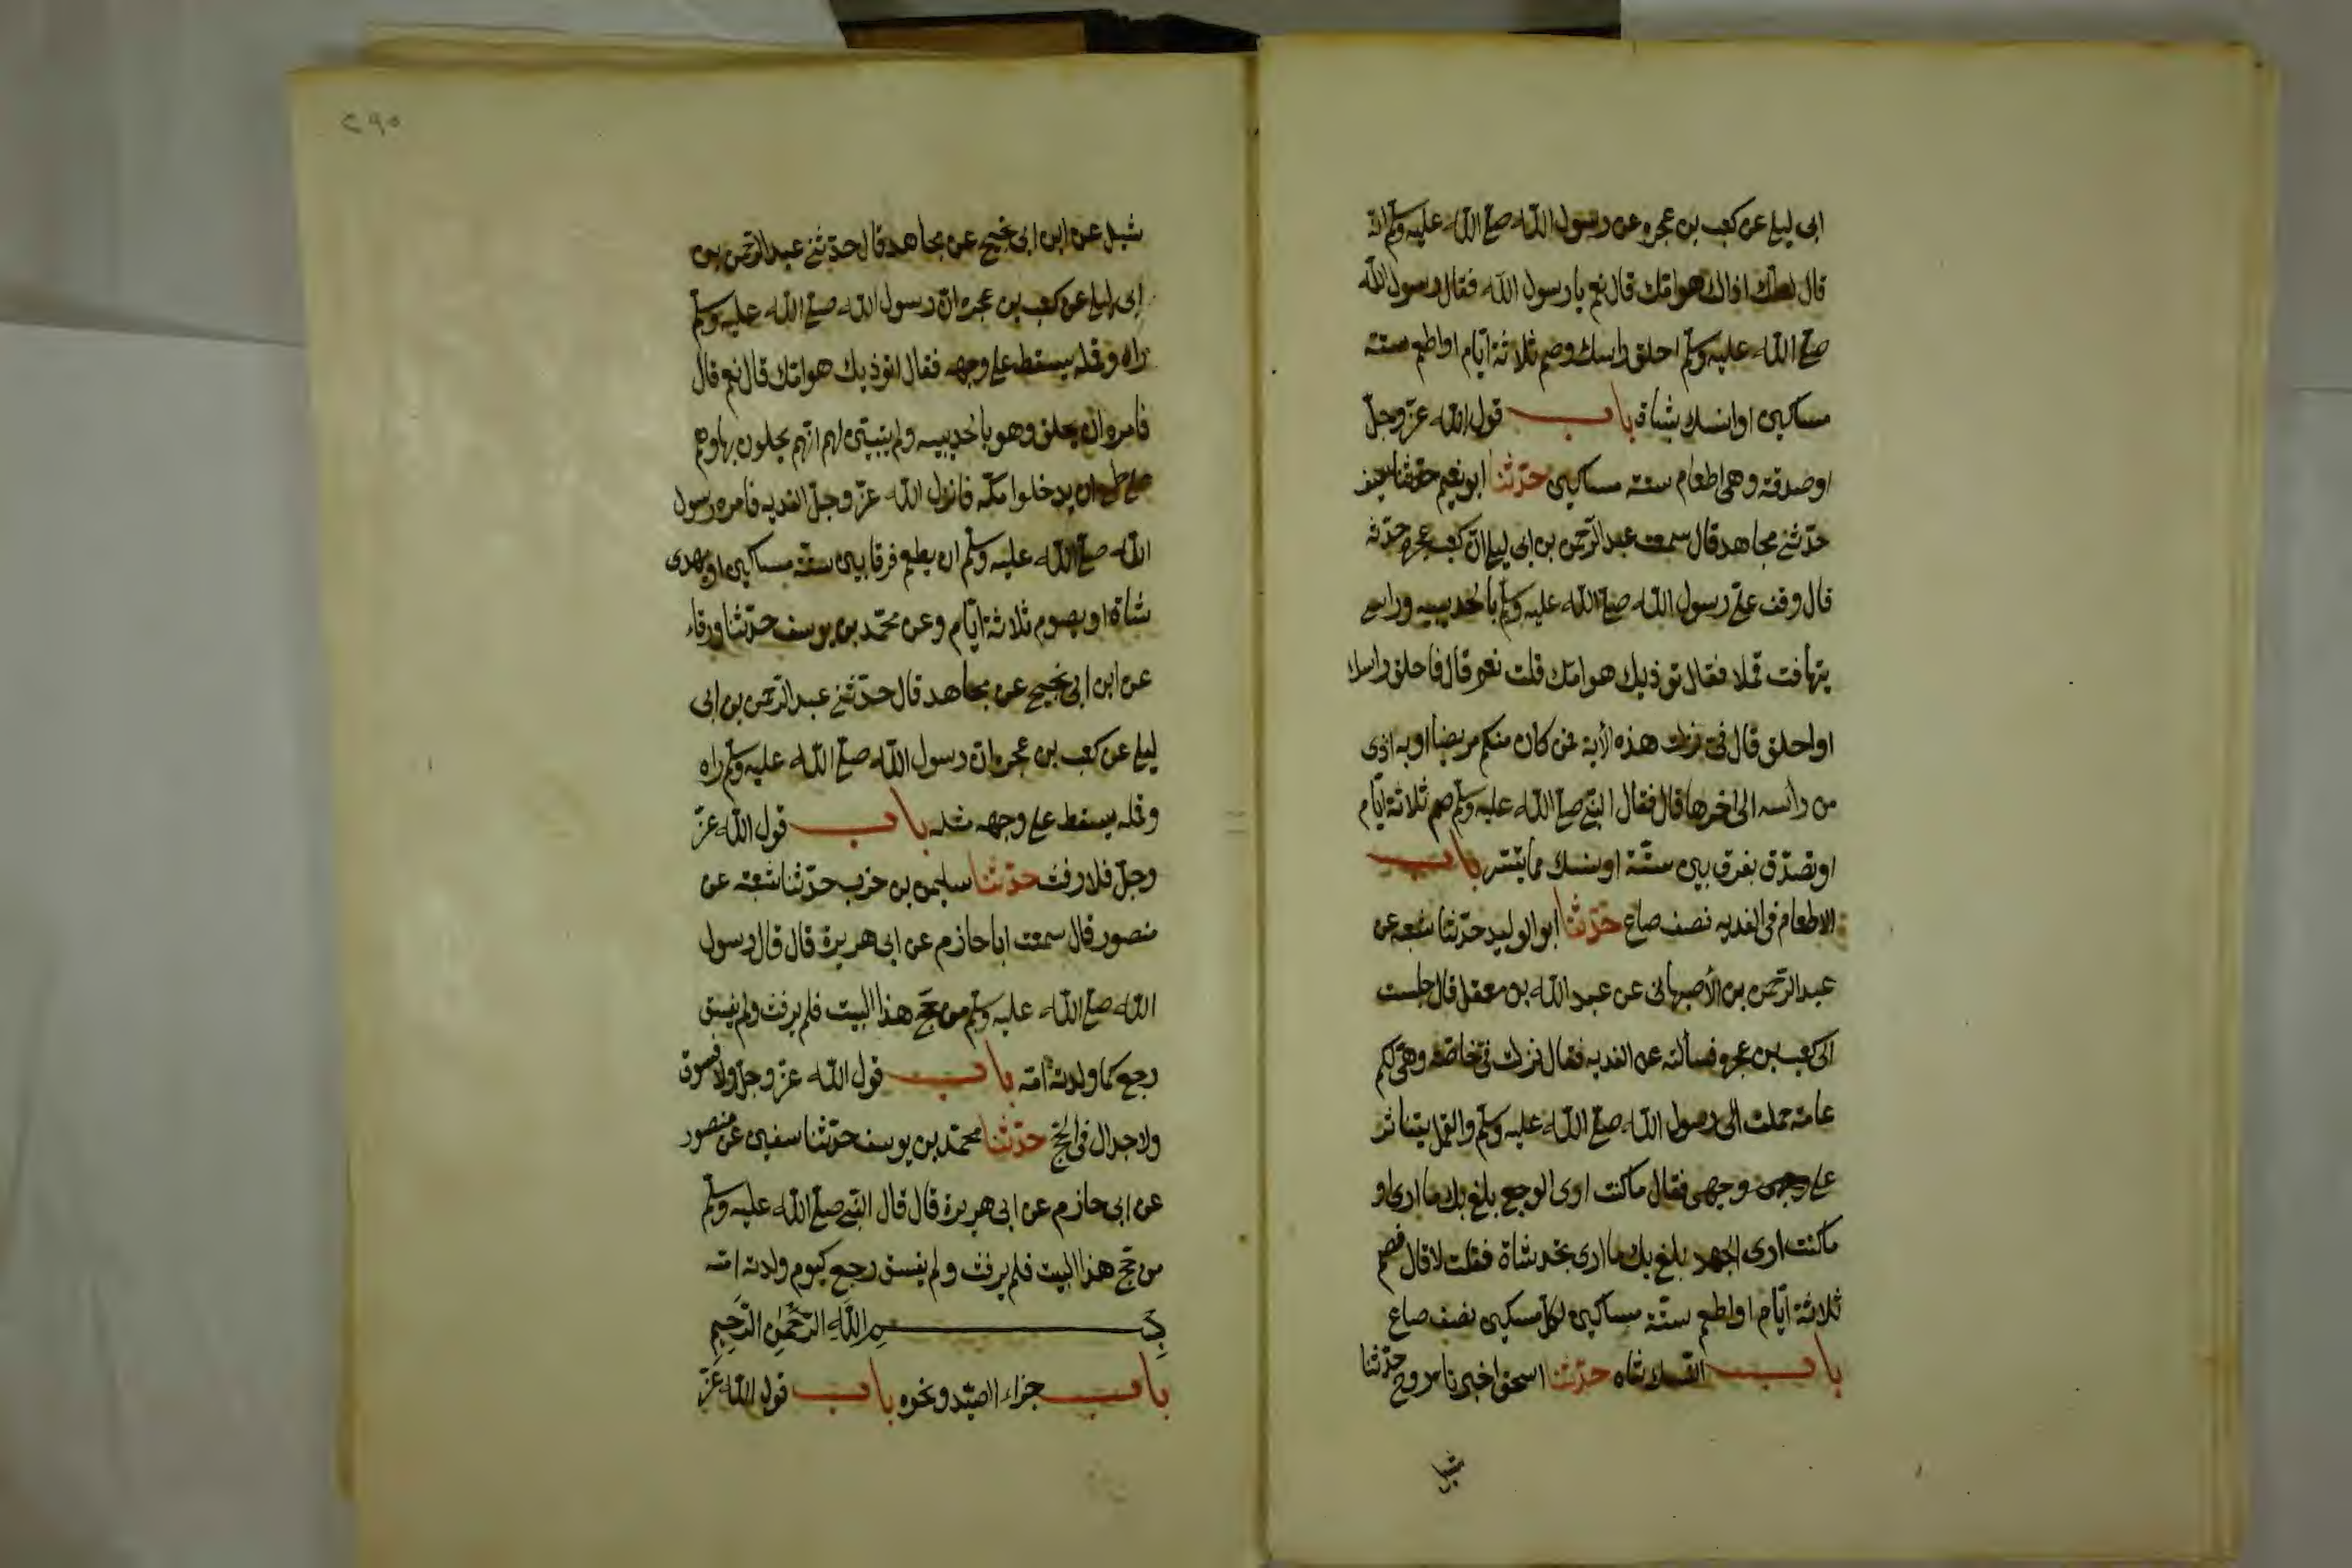 ابى ليلى عن كعب بن عجره عن رسول الله صلى الله عليه وسلم انه
قال لعلك اذاك هوامك قال نعم يا رسول الله فقال رسول الله
صلى الله عليه وسلم احلق راسك وصم ثلاثة ايام او اطعم ستة
مساكين او انسك بشاة باب قول الله عز وجل
او صدقة وهى اطعام ستة مساكين حدثنا ابو نعيم حدثنا سيف
حدثنى مجاهد قال سمعت عبد الرحمن بن ابى ليلى ان كعب عجره حدثه
قال وقف على رسول الله صلى الله عليه وسلم بالحديبيه وراسى
يتهافت قملا فقال توذيك هوامك قلت نعم قال فاحلق راسك
او احلق قال فى نزلت هذه الأية فمن كان منكم مريضا او به اذى
من رأسه الى اخرها قال فقال النبى صلى الله عليه وسلم صم ثلاثة ايام
او تصدق بفرق بين ستة او نسك مما تيسر باب
الاطعام فى الفديه نصف صاع حدثنا ابو الوليد حدثنا شعبه عن
عبد الرحمن بن الأصبهانى عن عبد الله بن معقل قال جلست
الى كعب بن عجره فسألته عن الفديه فقال نزلت فى خاصة وهى لكم
عامة حملت الى رسول الله صلى الله عليه وسلم والقمل يتناثر
على وجهى فقال ما كنت ارى الوجع بلغ بك ما ارى او
ما كنت ارى الجهد بلغ بك ما ارى تجد شاة فقلت لا قال فصم
ثلاثة ايام او اطعم ستة مساكين لكل مسكين نصف صاع
باب النسك شاه حدثنا اسحق اخبرنا روح حدثنا
شبل
٢٩٥
شبل عن ابن ابى نجيح عن مجاهد قال حدثنى عبد الرحمن بن
ابى ليلى عن كعب بن عجره ان رسول الله صلى الله عليه وسلم
راه وقمله يسقط على وجهه فقال اتوذيك هوامك قال نعم قال
فامره ان يحلق وهو بالحديبيه ولم يتبين لهم انهم يحلون بها وهم
على طمع ان يدخلوا مكه فانزل الله عز وجل الفديه فامره رسول
الله صلى الله عليه وسلم ان يطعم فرقا بين ستة مساكين او يهدى
شاة او يصوم ثلاثة ايام وعن محمد بن يوسف حدثنا ورقاء
عن ابن ابى نجيح عن مجاهد قال حدثنى عبد الرحمن بن ابى
ليلى عن كعب بن عجره ان رسول الله صلى الله عليه وسلم راه
وقمله يسقط على وجهه مثله باب قول الله عز
وجل فلا رفث حدثنا سليمن بن حرب حدثنا شعبه عن
منصور قال سمعت ابا حازم عن ابى هريرة قال قال رسول
الله صلى الله عليه وسلم من حج هذا البيت فلم يرفث ولم يفسق
رجع كما ولدته امه باب قول الله عز وجل ولا فسوق
ولا جدال فى الحج حدثنا محمد بن يوسف حدثنا سفين عن منصور
عن ابى حازم عن ابى هريرة قال قال النبى صلى الله عليه وسلم
من حج هذا البيت فلم يرفث ولم يفسق رجع كيوم ولدته امه
بِسْمِ اللَّهِ الرَّحْمٰنِ الرَّحِيمِ
باب جزاء الصيد ونحوه باب قول الله عز